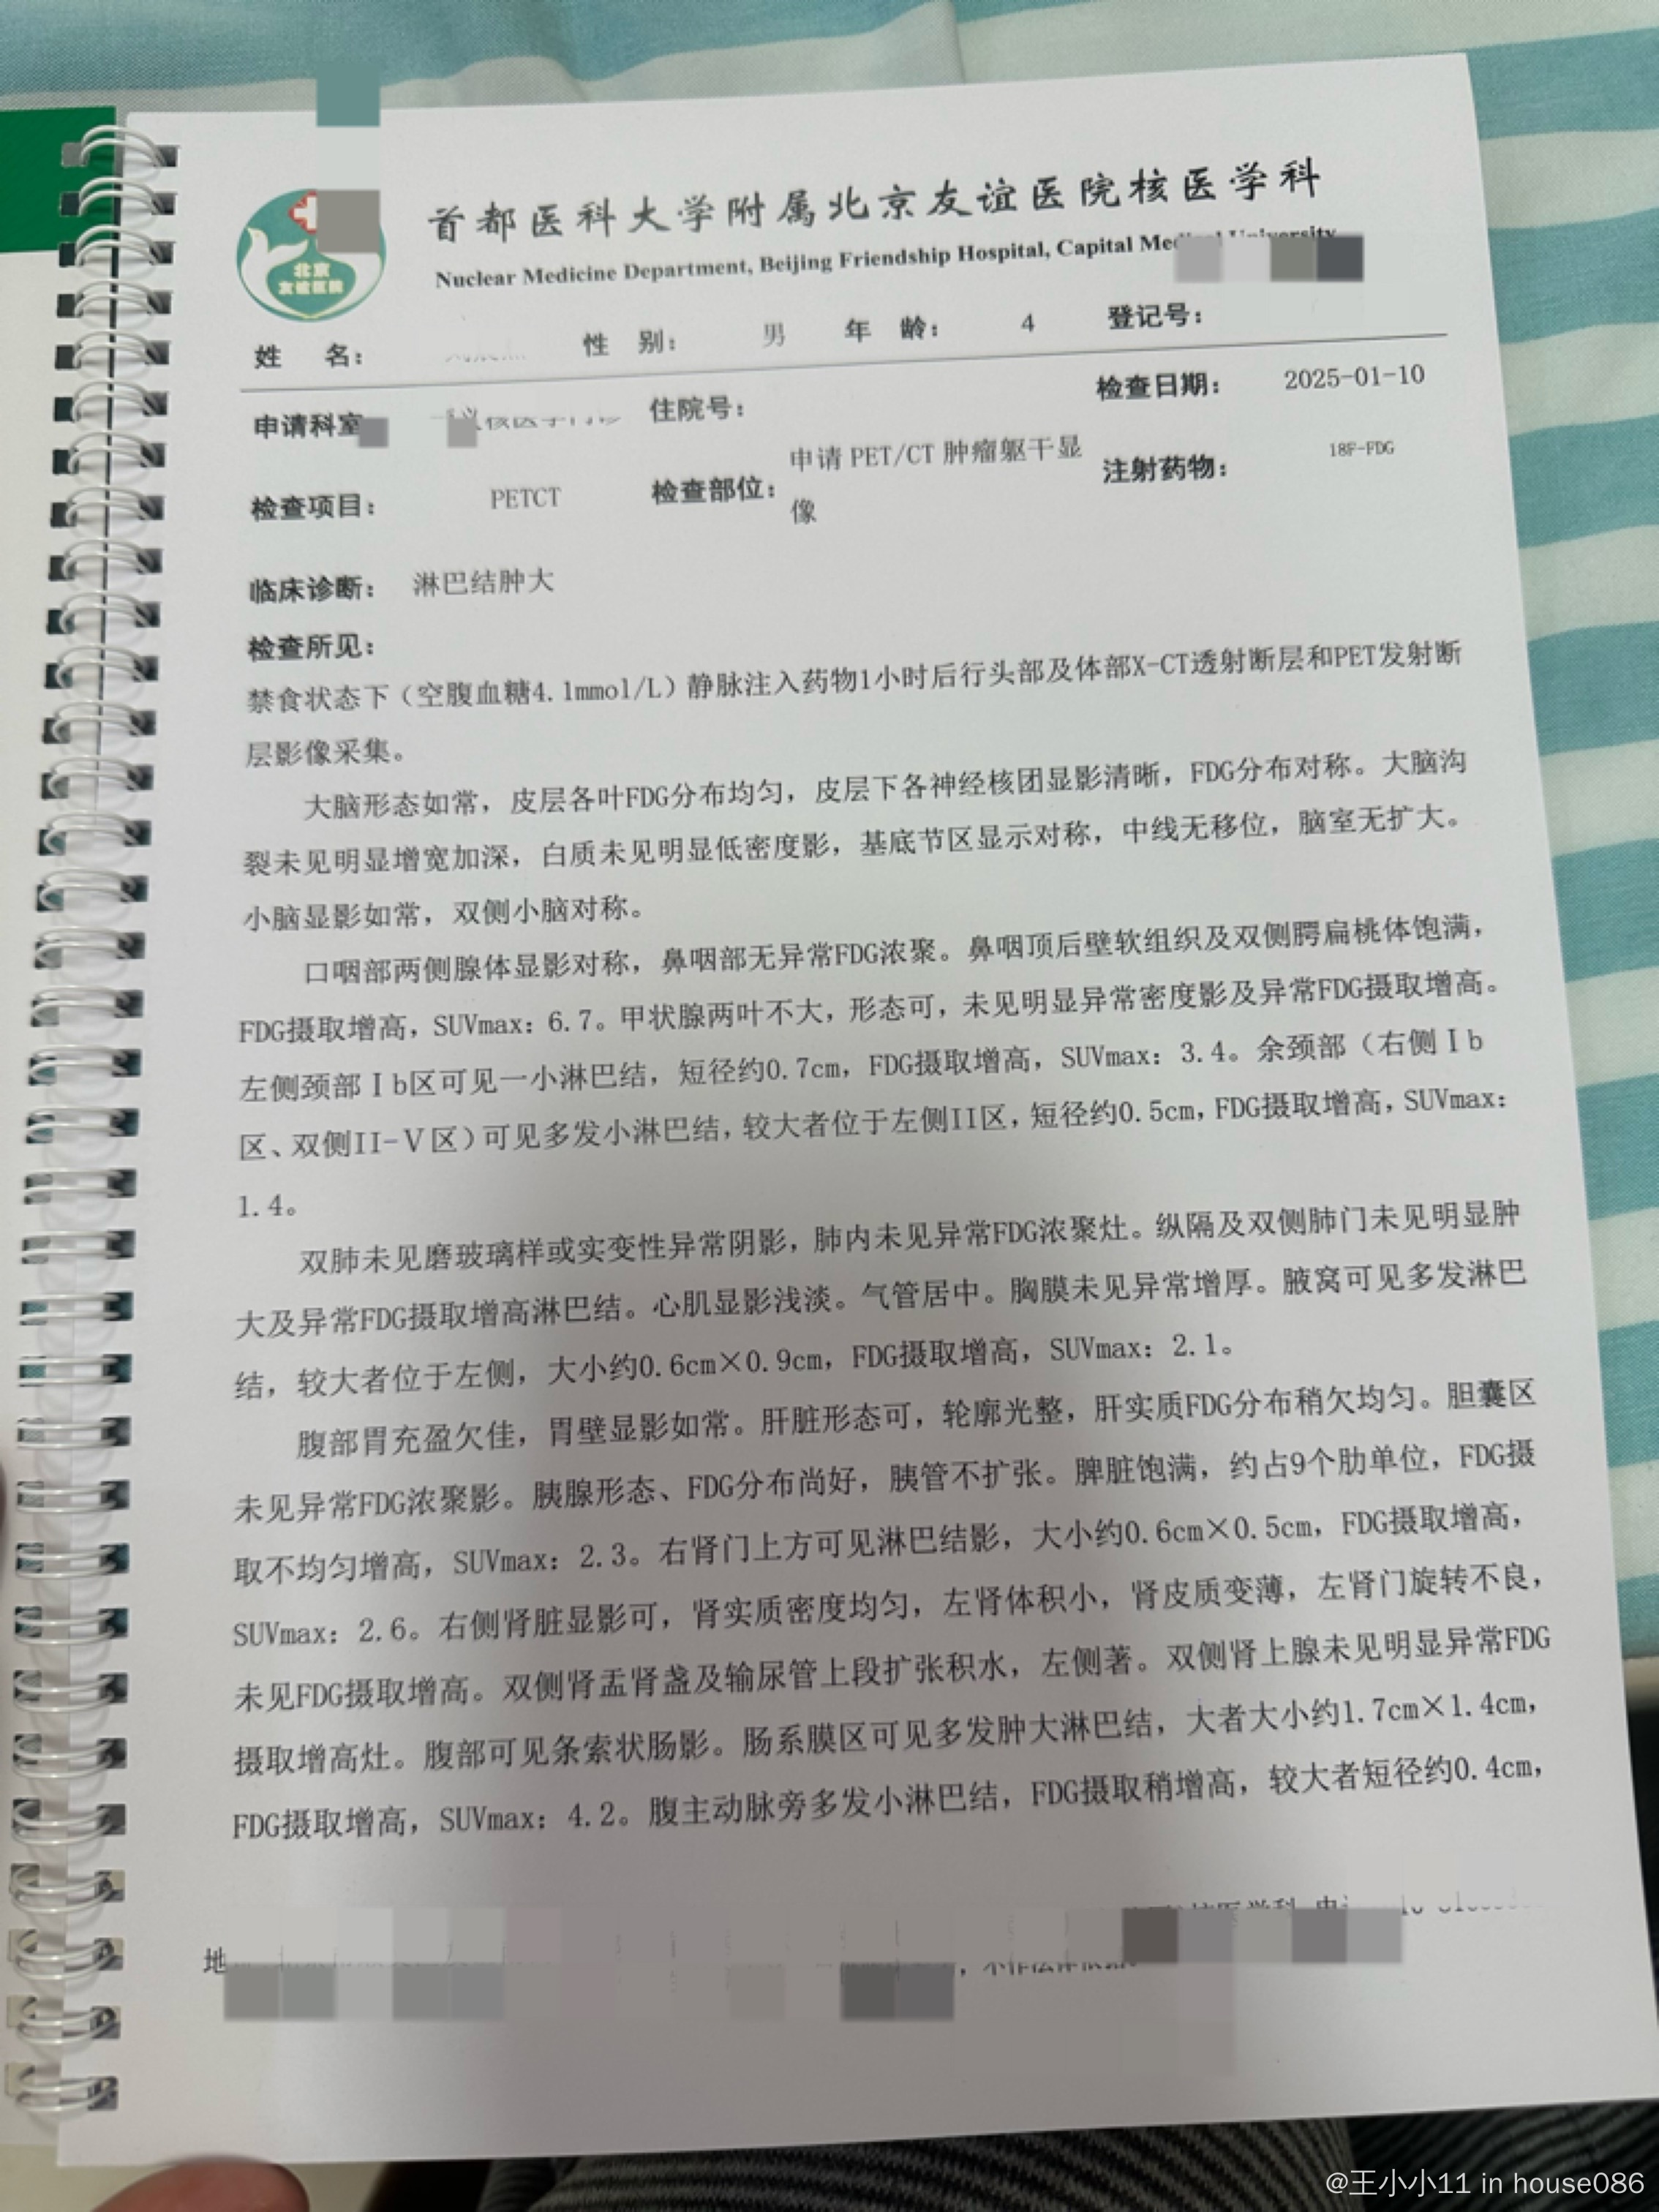 首都医科大学附属北京友谊医院核医学科
Nuclear Medicine Department, Beijing Friendship Hospital, Capital Medical University
北京
友谊医院
姓 名： 性 别： 男 年 龄： 4 登记号：
申请科室 核医学门诊 住院号： 检查日期： 2025-01-10
检查项目： PETCT 检查部位： 申请 PET/CT 肿瘤躯干显像 注射药物： 18F-FDG
临床诊断： 淋巴结肿大
检查所见：
禁食状态下（空腹血糖4.1mmol/L）静脉注入药物1小时后行头部及体部X-CT透射断层和PET发射断
层影像采集。
大脑形态如常，皮层各叶FDG分布均匀，皮层下各神经核团显影清晰，FDG分布对称。大脑沟
裂未见明显增宽加深，白质未见明显低密度影，基底节区显示对称，中线无移位，脑室无扩大。
小脑显影如常，双侧小脑对称。
口咽部两侧腺体显影对称，鼻咽部无异常FDG浓聚。鼻咽顶后壁软组织及双侧腭扁桃体饱满，
FDG摄取增高，SUVmax：6.7。甲状腺两叶不大，形态可，未见明显异常密度影及异常FDG摄取增高。
左侧颈部Ⅰb区可见一小淋巴结，短径约0.7cm，FDG摄取增高，SUVmax：3.4。余颈部（右侧Ⅰb
区、双侧II-Ⅴ区）可见多发小淋巴结，较大者位于左侧II区，短径约0.5cm，FDG摄取增高，SUVmax：
1.4。
双肺未见磨玻璃样或实变性异常阴影，肺内未见异常FDG浓聚灶。纵隔及双侧肺门未见明显肿
大及异常FDG摄取增高淋巴结。心肌显影浅淡。气管居中。胸膜未见异常增厚。腋窝可见多发淋巴
结，较大者位于左侧，大小约0.6cm×0.9cm，FDG摄取增高，SUVmax：2.1。
腹部胃充盈欠佳，胃壁显影如常。肝脏形态可，轮廓光整，肝实质FDG分布稍欠均匀。胆囊区
未见异常FDG浓聚影。胰腺形态、FDG分布尚好，胰管不扩张。脾脏饱满，约占9个肋单位，FDG摄
取不均匀增高，SUVmax：2.3。右肾门上方可见淋巴结影，大小约0.6cm×0.5cm，FDG摄取增高，
SUVmax：2.6。右侧肾脏显影可，肾实质密度均匀，左肾体积小，肾皮质变薄，左肾门旋转不良，
未见FDG摄取增高。双侧肾盂肾盏及输尿管上段扩张积水，左侧著。双侧肾上腺未见明显异常FDG
摄取增高灶。腹部可见条索状肠影。肠系膜区可见多发肿大淋巴结，大者大小约1.7cm×1.4cm，
FDG摄取增高，SUVmax：4.2。腹主动脉旁多发小淋巴结，FDG摄取稍增高，较大者短径约0.4cm，
地
@王小小11 in house086